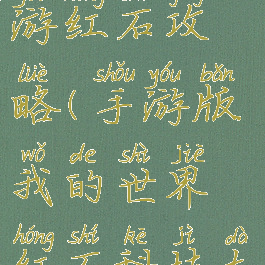 游红石攻
lüè shǒu yóu bǎn
略(手游版
wǒ de shì jiè
我的世界
hóng shí kē jì dà
红石科技大